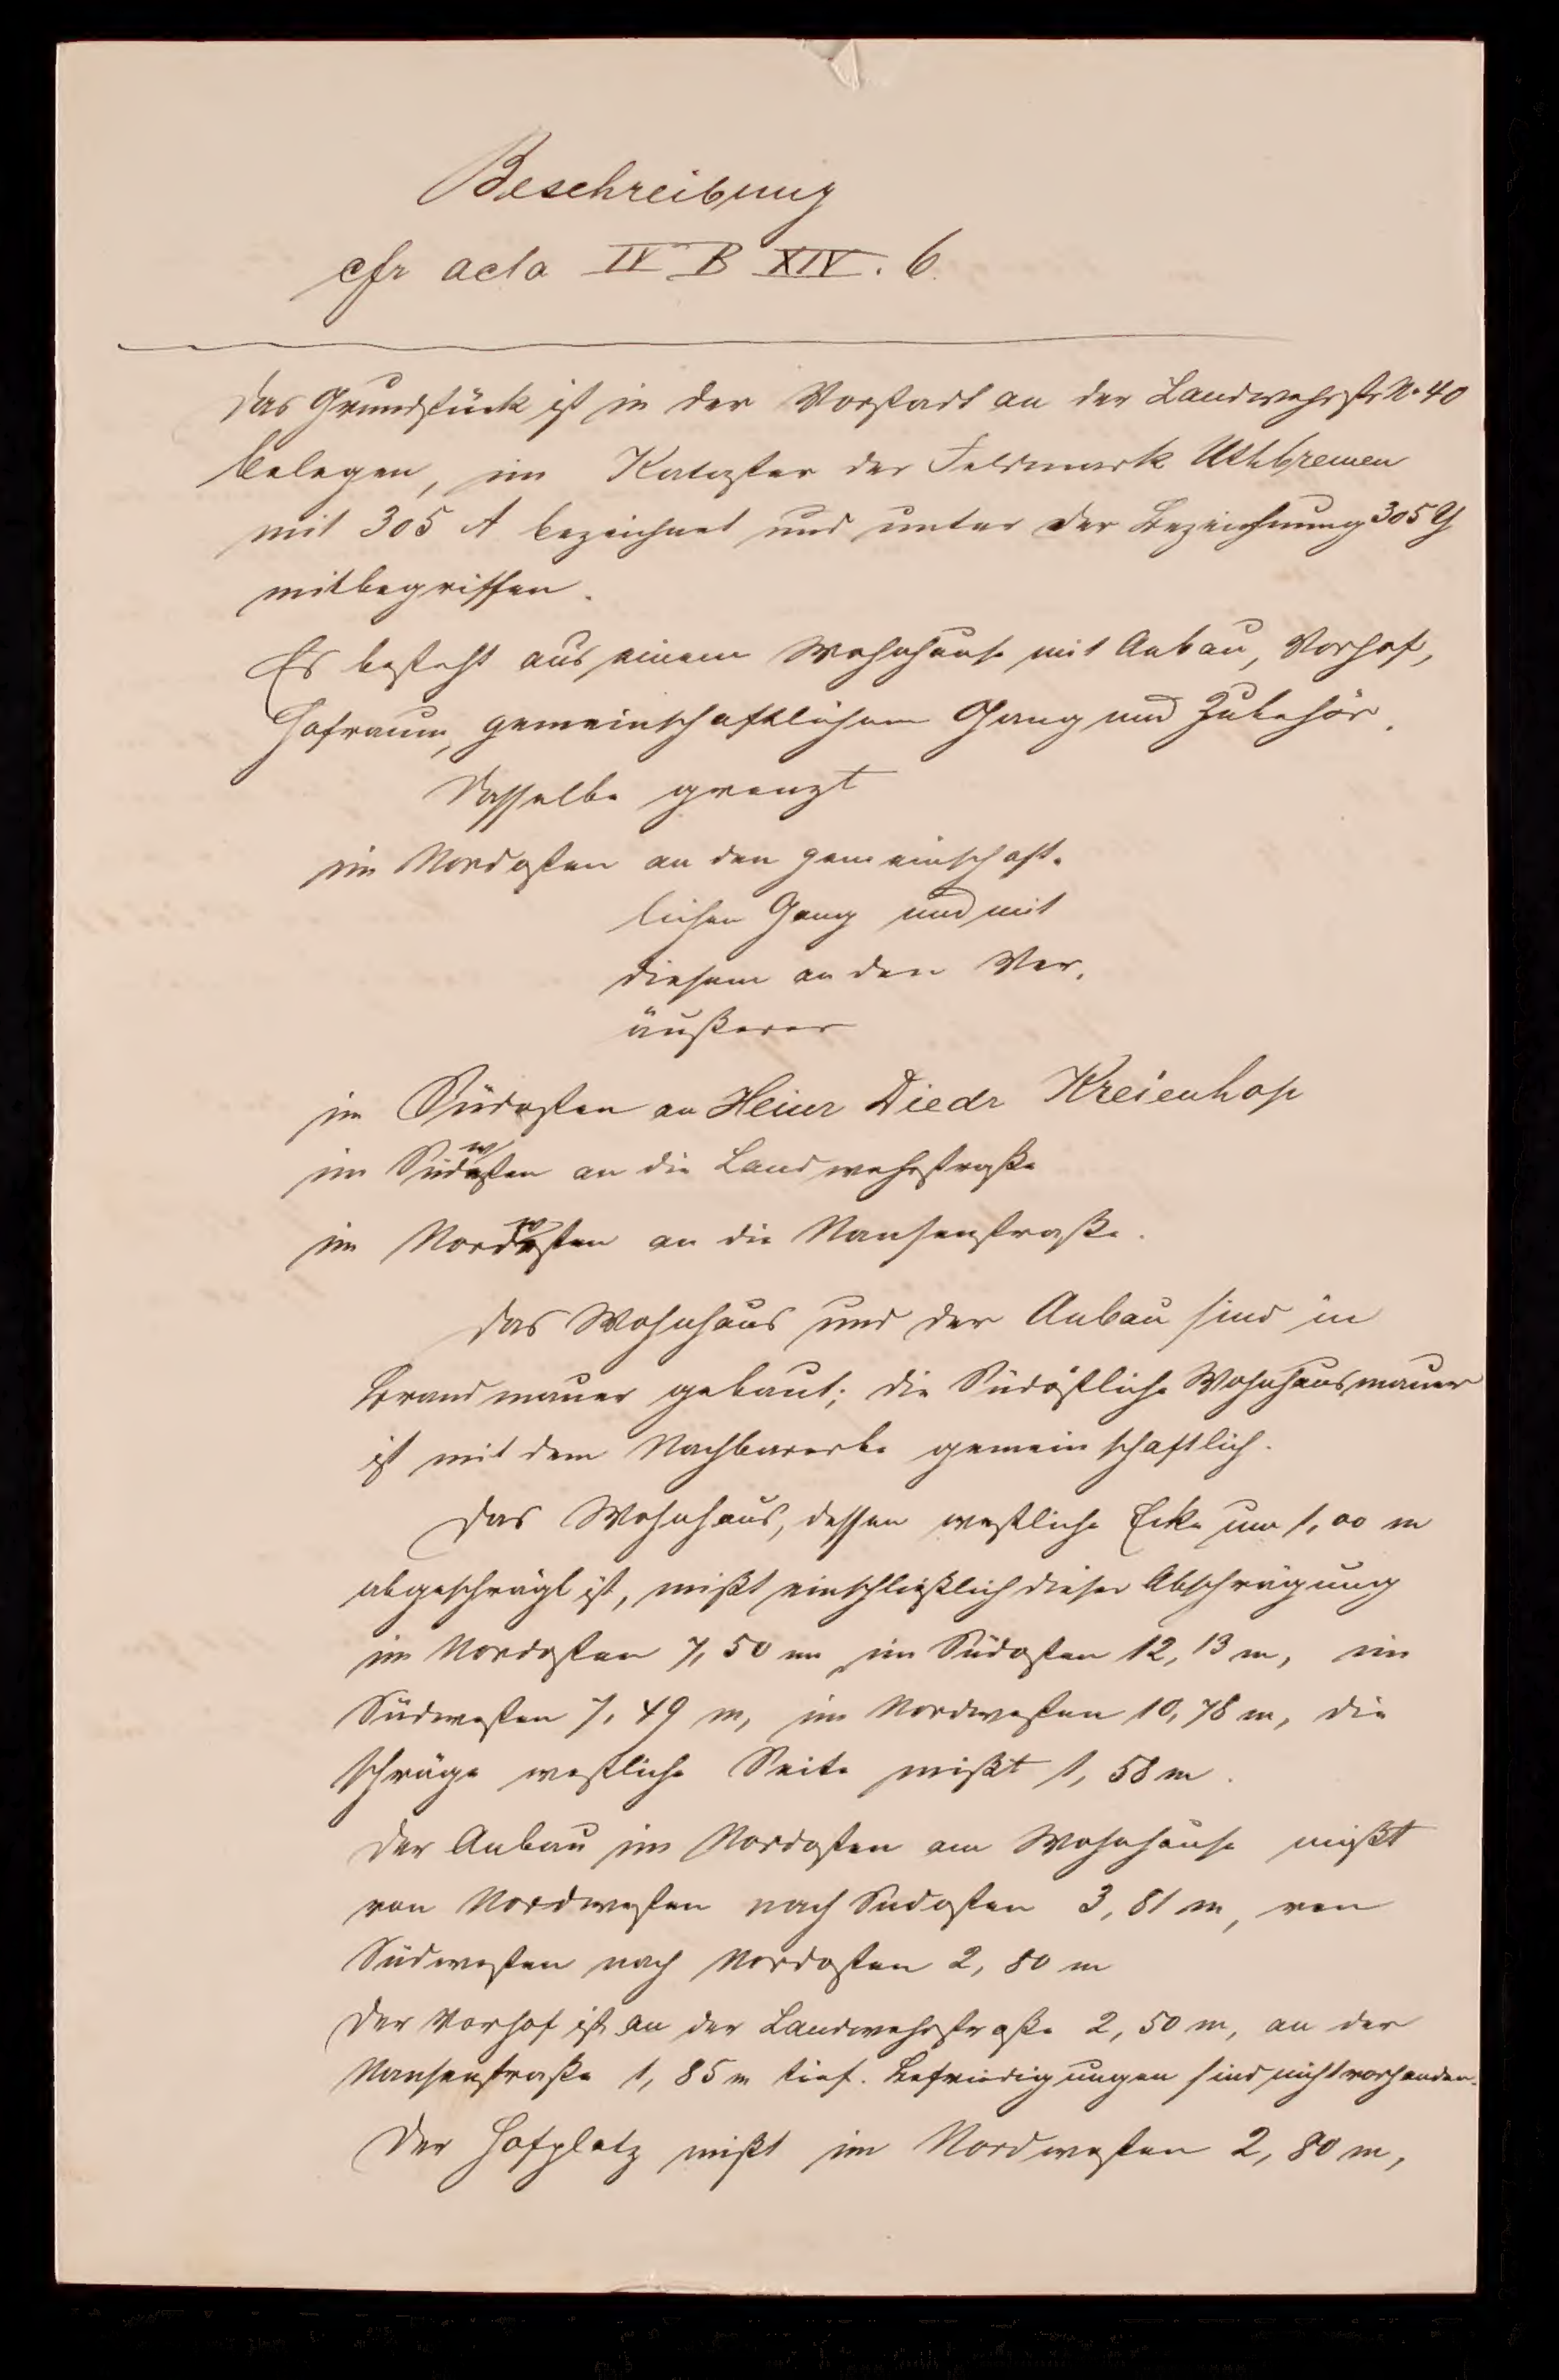 Beschreibung
cfr acta IV B XIV. 6.
Das Grundstück ist in der Vorstadt an der Landwehrstr. No 40
belegen, im Kataster der Feldmark Uthbremen
mit 305 A bezeichnet und unter der Bezeichnung 305 Y
mitbegriffen.
Es besteht aus einem Wohnhause mit Anbau, Vorhof,
Hofraum, gemeinschaftlichem Gang und Zubehör.
Dasselbe grenzt
im Nordosten an den gemeinschaft-
lichen Gang und mit
diesem an den Ver-
äußerer
im Südosten an Heinr Diedr Kreienhop
im Südwesten an die Landwehrstraße
im Nordwesten an die Nansenstraße.
Das Wohnhaus und der Anbau sind in
Brandmauer gebaut; die Südöstliche Wohnhausmauer
ist mit dem Nachbarerbe gemeinschaftlich.
Das Wohnhaus, dessen westliche Ecke um 1,00 m
abgeschrägt ist, mißt einschließlich dieser Abschrägung
im Nordosten 7,50 m im Südosten 12,13 m, im
Südwesten 7,49 m, im Nordwesten 10,78 m, die
schräge westliche Seite mißt 1,58 m.
Der Anbau im Nordosten am Wohnhause mißt
von Nordwesten nach Südosten 3,81 m, von
Südwesten nach Nordosten 2,80 m
Der Vorhof ist an der Landwehrstraße 2,50 m, an der
Nansenstraße 1,85 m tief. Befriedigungen sind nicht vorhanden.
Der Hofplatz mißt im Nordwesten 2,80 m,